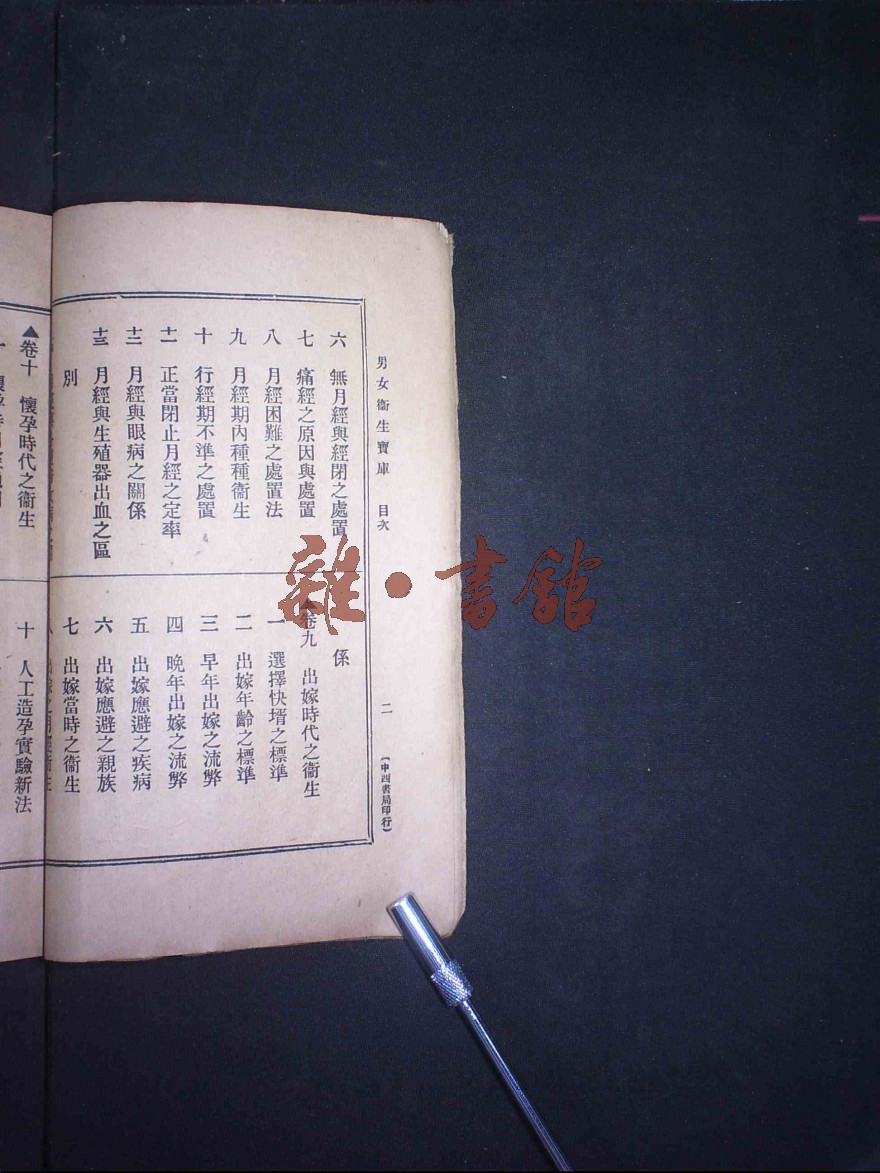 男女衞生寶庫 目次
二
(中西書局印行)
六 無月經與經閉之處置
七 痛經之原因與處置
八 月經困難之處置法
九 月經期內種種衞生
十 行經期不準之處置
十一 正當閉止月經之定率
十二 月經與眼病之關係
十三 月經與生殖器出血之區
別
係
▲卷九 出嫁時代之衞生
一 選擇快壻之標準
二 出嫁年齡之標準
三 早年出嫁之流弊
四 晚年出嫁之流弊
五 出嫁應避之疾病
六 出嫁應避之親族
七 出嫁當時之衞生
▲卷十 懷孕時代之衞生
十 人工造孕實驗新法
雜·書館